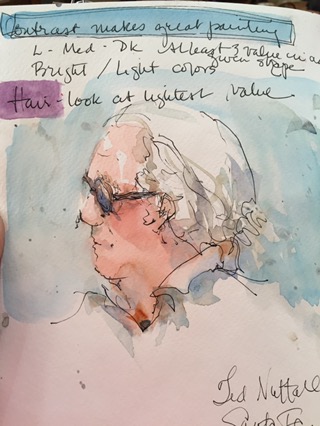 Contrast makes great painting
L - Med - Dk At least 3 value in a
given shape
Bright / Light colors
Hair - look at lightest value
Ted Nuttall
Santa Fe